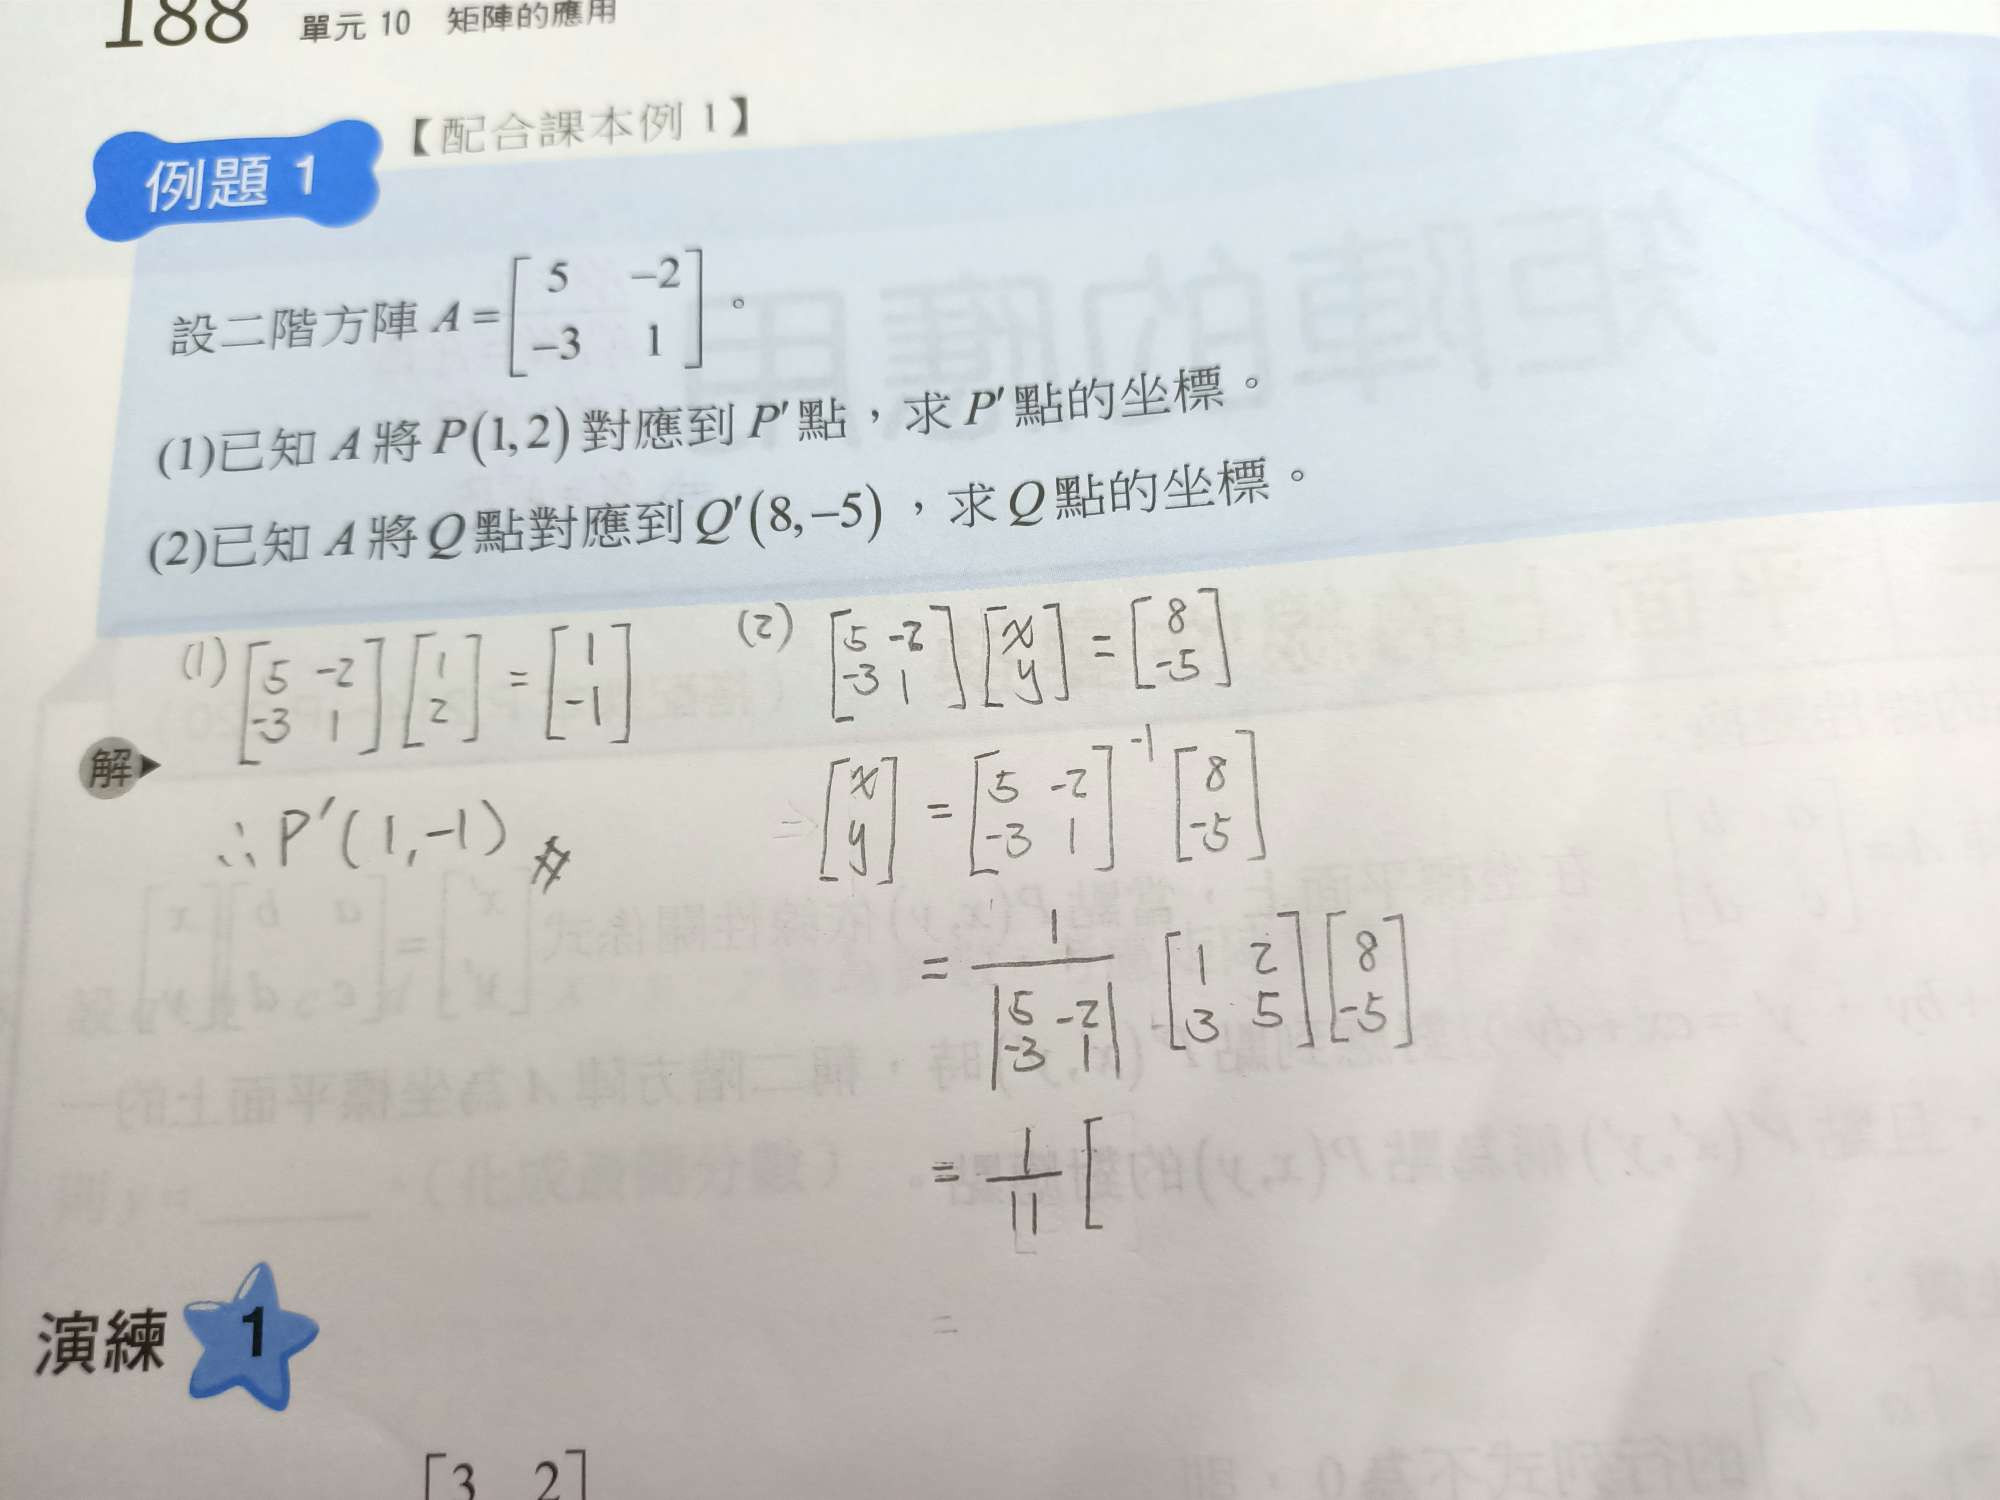 188 單元 10 矩陣的應用
例題 1 【配合課本例 1】
設二階方陣 A = [ 5 −2 ; −3 1 ]。
(1)已知 A 將 P(1,2) 對應到 P′點，求 P′點的坐標。
(2)已知 A 將 Q 點對應到 Q′(8,−5)，求 Q 點的坐標。
解
(1) [ 5 -2 ; -3 1 ] [ 1 ; 2 ] = [ 1 ; -1 ]
∴ P′(1,-1) #
(2) [ 5 -2 ; -3 1 ] [ x ; y ] = [ 8 ; -5 ]
[ x ; y ] = [ 5 -2 ; -3 1 ]⁻¹ [ 8 ; -5 ]
= 1 / | 5 -2 ; -3 1 | [ 1 2 ; 3 5 ] [ 8 ; -5 ]
= 1/11 [
=
演練 1
[ 3 2 ]